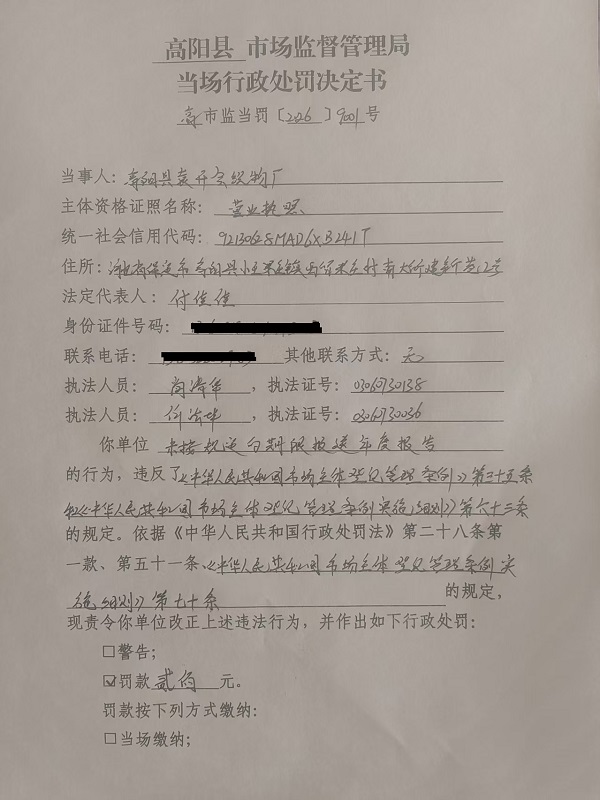 高阳县 市场监督管理局
当场行政处罚决定书
高市监当罚〔2026〕9001号
当事人：高阳县 织物厂
主体资格证照名称：营业执照
统一社会信用代码：92130628MAD6XB241T
住所：河北省保定市高阳县 号
法定代表人：付佳佳
身份证件号码：
联系电话： 其他联系方式：无
执法人员： ，执法证号：0306730138
执法人员： ，执法证号：0306730036
你单位 未按规定的期限报送年度报告
的行为，违反了《中华人民共和国市场主体登记管理条例》第三十五条
和《中华人民共和国市场主体登记管理条例实施细则》第六十三条
的规定。依据《中华人民共和国行政处罚法》第二十八条第
一款、第五十一条、《中华人民共和国市场主体登记管理条例实
施细则》第七十条 的规定，
现责令你单位改正上述违法行为，并作出如下行政处罚：
☐警告；
☑罚款贰佰元。
罚款按下列方式缴纳：
☐当场缴纳；